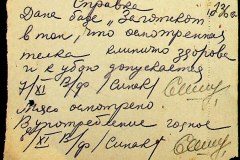 Справка
Дана базе "Заготскот"
в том, что осмотренная
телка клинично здорова
и к убою допускается
7/XI В/ф /Синак/
Мясо осмотрено
В употребление годное
7/XI В/ф /Синак/